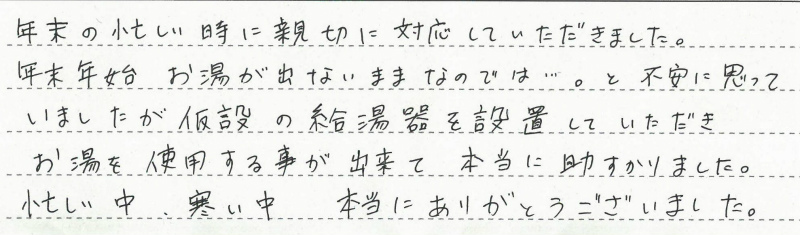 年末の忙しい時に親切に対応していただきました。
年末年始 お湯が出ないままなのでは…。と不安に思って
いましたが仮設の給湯器を設置していただき
お湯を使用する事が出来て 本当に助すかりました。
忙しい中、寒い中 本当にありがとうございました。